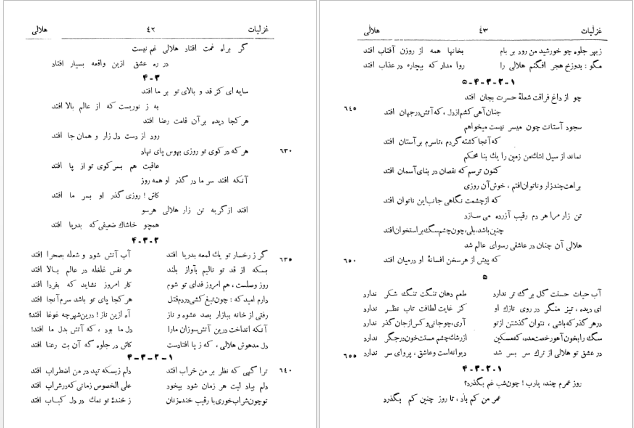 غزلیات ۴۲ هلالی
گر براه غمت افتاد هلالی غم نیست
در ره عشق ازین واقعه بسیار افتد
۴-۳
سایه ای کز قد و بالای تو بر ما افتد
به ز نوریست که از عالم بالا افتد
هر کجا دیده بر آن قامت رعنا افتد
رود از دست دل زار و همان جا افتد
هر که در کوی تو روزی بهوس پای نهاد ۶۳۰
عاقبت هم بسر کوی تو از پا افتد
آنکه افتد سر ما در گذر او همه روز
کاش! روزی گذر او بسر ما افتد
افتد از گریه تن زار هلالی هرسو
همچو خاشاک ضعیفی که بدریا افتد
۴-۳-۲
گر ز رخسار تو یک لمعه بدریا افتد آب آتش شود و شعله بصحرا افتد ۶۳۵
بسکه از قد تو نالیم بآواز بلند هر نفس غلغله در عالم بالا افتد
روز وصلست، هم امروز فدای تو شوم کار امروز نشاید که بفردا افتد
دارم امید که: چون تیغ کشی در دم قتل هر کجا پای تو باشد سرم آنجا افتد
رفتی از خانه ببازار بصد عشوه و ناز آه ازین ناز! درین شهر چه غوغا افتد
آنکه انداخت درین آتش سوزان ما را دل ما بود، که آتش بدل ما افتد
دل مدهوش هلالی، که ز پا افتادست کاش در جلوه گه آن بت رعنا افتد
۴-۳-۲-۱
ترا گهی که نظر بر من خراب افتد دلم ز بسکه تپد در من اضطراب افتد ۶۴۰
دلم بیاد لبت هر زمان شود بیخود علی الخصوص زمانی که در شراب افتد
تو چون شراب خوری با رقیب خنده زنان ز خندهٔ تو نمک در دل کباب افتد
غزلیات ۴۳ هلالی
ز بهر جلوه چو خورشید من رود بر بام بخانها همه از روزن آفتاب افتد
مگو: بدوزخ هجر افکنم هلالی را روا مدار که بیچاره در عذاب افتد
۵-۴-۳-۲-۱
چو از داغ فراقت شعلهٔ حسرت بجان افتد
چنان آهی کشم از دل، که آتش در جهان افتد ۶۴۵
سجود آستانت چون میسر نیست میخواهم
که آنجا کشته گردم، تا سرم بر آستان افتد
نماند از سیل اشک من زمین را یک بنا محکم
کنون ترسم که نقصان در بنای آسمان افتد
براهت چند زار و ناتوان افتم، خوش آن روزی
که از چشمت نگاهی جانب این ناتوان افتد
تن زار مرا هر دم رقیب آزرده می سازد
چنین باشد، بلی، چون چشم سگ بر استخوان افتد
هلالی آن چنان در عاشقی رسوای عالم شد
که پیش از هر سخن افسانهٔ او در میان افتد ۶۵۰
۵
آب حیات حسنت گل برگ تر ندارد طعم دهان تنگت تنگ شکر ندارد
ای دیده، تیز منگر در روی نازک او کز غایت لطافت تاب نظر ندارد
در هر گذر که باشی، نتوان گذشتن از تو آری، چو جانی و کس از جان گذر ندارد
سگ را بخون آهو رخصت مده، که مسکین از رشک چشم مستت خون در جگر ندارد
در عشق تو هلالی از ترک سر بسر شد دیوانه است و عاشق، پروای سر ندارد ۶۵۵
۴-۳-۲-۱
روز عمرم چند، یارب! چون شب غم بگذرد؟
عمر من کم باد، تا روز چنین کم بگذرد